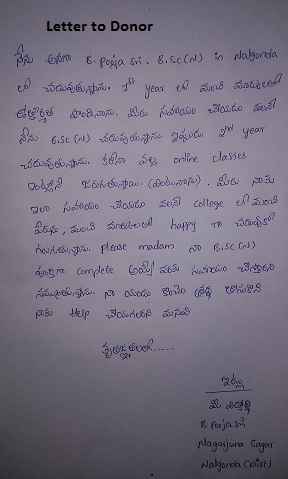 Letter to Donor
నేను అనగా B. Pooja Sri. B.Sc(N) in Nalgonda
లో చదువుతున్నాను. 1st year లో మంచి మార్కులతో
ఉత్తీర్ణత పొందినాను. మీరు సహాయం చేయడం వలన
నేను B.Sc(N) చదువుతున్నాను. ఇప్పుడు 2nd year
చదువుతున్నాను. కరోనా వల్ల online classes
జరుగుతున్నాయి. మీరు నాకు
ఇలా సహాయం చేయడం వలన college లో మంచి
పేరును, మంచి మార్కులతో happy గా చదువుకో
గలుగుతున్నాను. please madam నా B.Sc(N)
పూర్తిగా complete అయ్యే వరకు సహాయం చేస్తారని
నమ్ముతున్నాను. నా యందు కొంచెం శ్రద్ధ
నాకు Help చేయగలరని మనవి
కృతజ్ఞతలతో......
ఇట్లు
మీ విద్యార్థి
B Poojasri
Nagarjuna Sagar
Nalgonda (Dist)